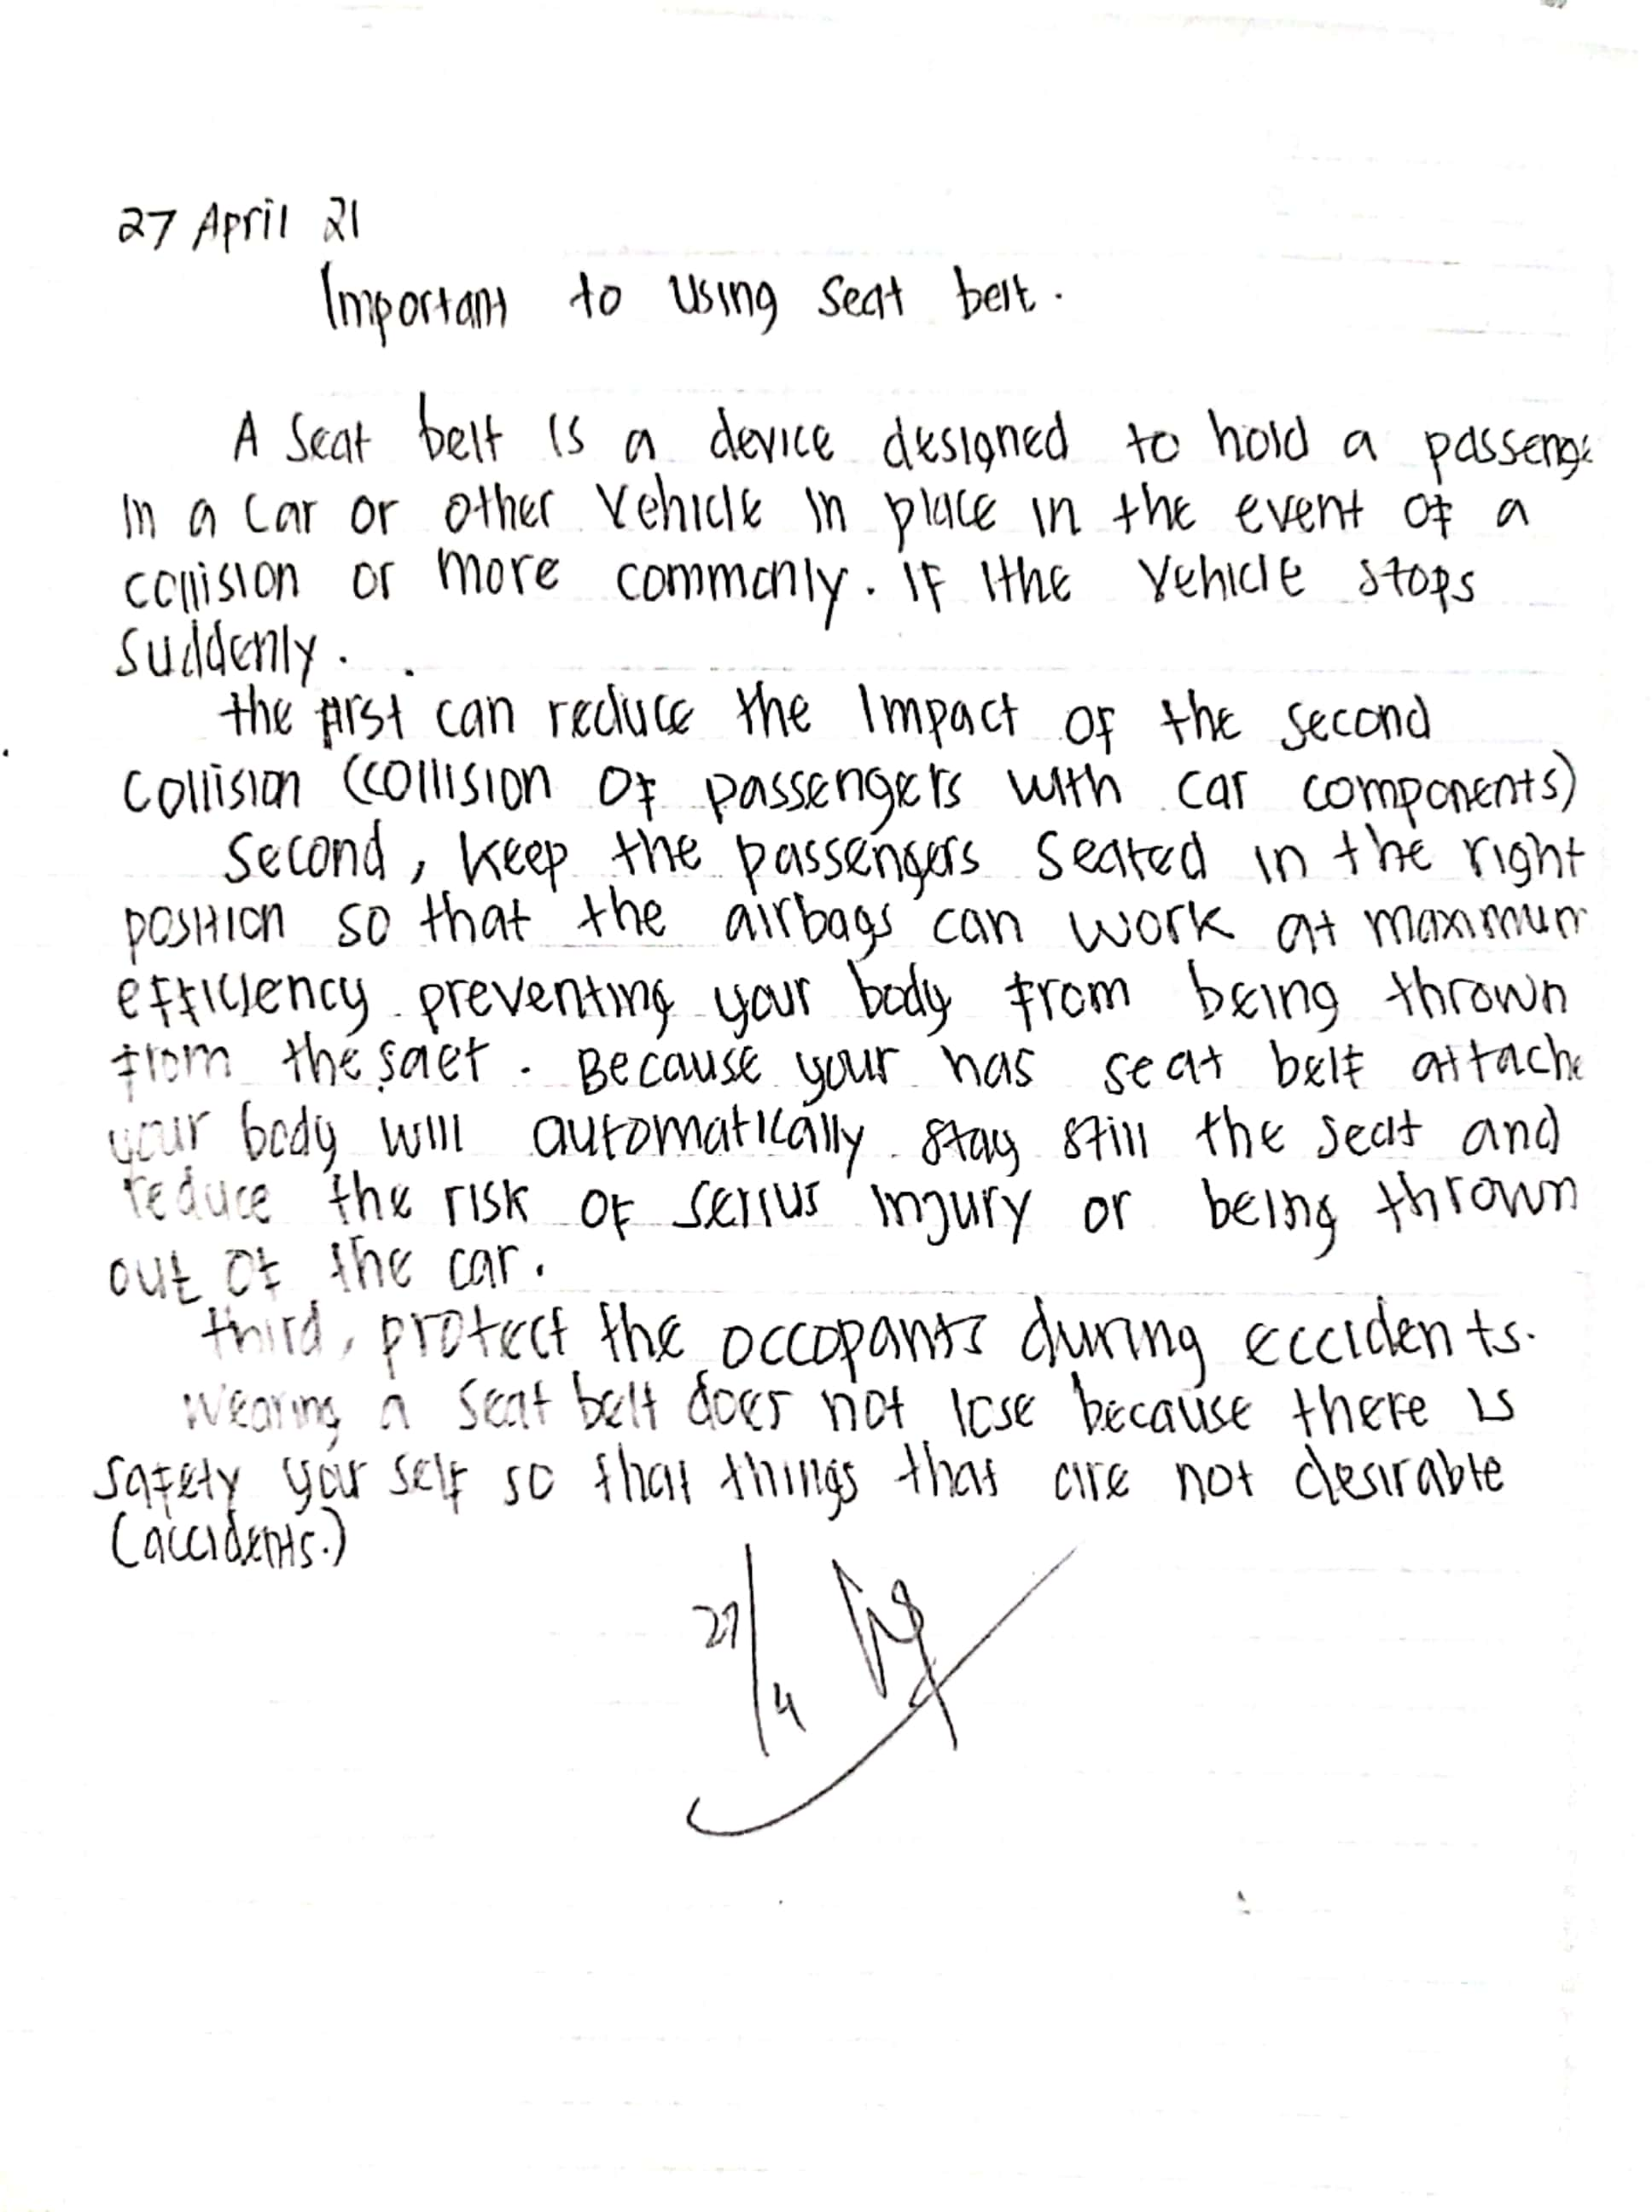 27 April 21
Important to Using Seat belt.
A Seat belt is a device designed to hold a passenge
in a Car or other Vehicle in place in the event of a
collision or more commonly. if the Vehicle stops
Suddenly.
the first can reduce the Impact of the second
Collision (collision of passengers with car components)
Second, keep the passengers Seated in the right
position so that the airbags can work at maximum
efficiency preventing your body from being thrown
from the saet. Because your has seat belt attache
your body will automatically stay still the seat and
reduce the risk of serius injury or being thrown
out of the car.
third, protect the occopants during eccidents.
wearing a Seat belt does not lose because there is
Safety your self so that things that are not desirable
(accidents.)
27/4